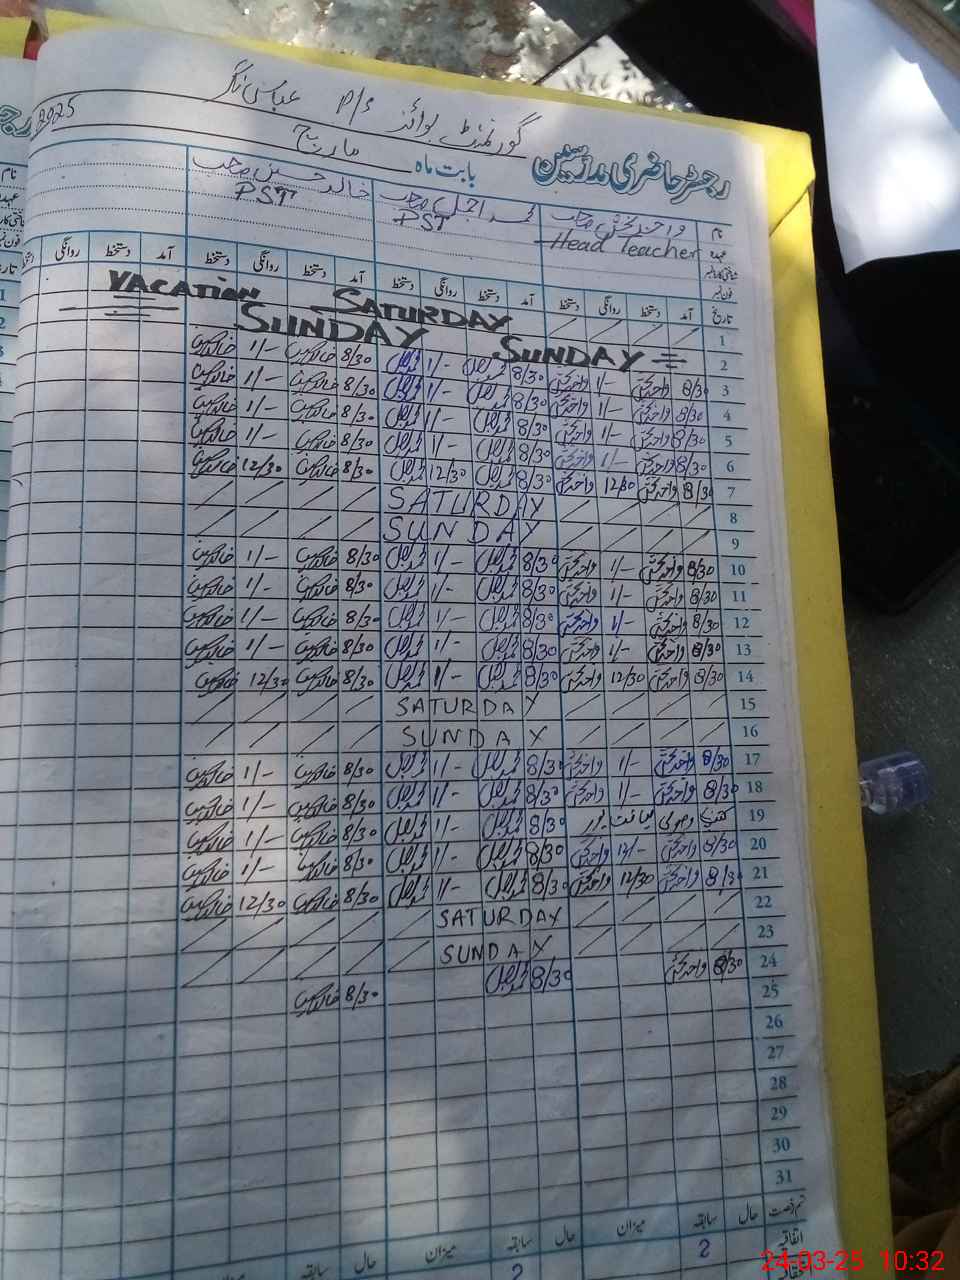 گورنمنٹ بوائز P/S عباسی نگر
رجسٹر حاضری مدرسین بابت ماہ مارچ 2025
نام واحد بخش صاحب محمد اجمل صاحب خالد حسین صاحب
عہدہ Head Teacher PST PST
شناختی کارڈ نمبر
فون نمبر
تاریخ آمد دستخط روانگی دستخط آمد دستخط روانگی دستخط آمد دستخط روانگی دستخط آمد دستخط روانگی
1 SATURDAY VACATION
2 SUNDAY SUNDAY
3 8/30 واحد بخش 1/- واحد بخش 8/30 محمد اجمل 1/- محمد اجمل 8/30 خالد حسین 1/- خالد حسین
4 8/30 واحد بخش 1/- واحد بخش 8/30 محمد اجمل 1/- محمد اجمل 8/30 خالد حسین 1/- خالد حسین
5 8/30 واحد بخش 1/- واحد بخش 8/30 محمد اجمل 1/- محمد اجمل 8/30 خالد حسین 1/- خالد حسین
6 8/30 واحد بخش 1/- واحد بخش 8/30 محمد اجمل 1/- محمد اجمل 8/30 خالد حسین 1/- خالد حسین
7 8/30 واحد بخش 12/30 واحد بخش 8/30 محمد اجمل 12/30 محمد اجمل 8/30 خالد حسین 12/30 خالد حسین
8 SATURDAY
9 SUNDAY
10 8/30 واحد بخش 1/- واحد بخش 8/30 محمد اجمل 1/- محمد اجمل 8/30 خالد حسین 1/- خالد حسین
11 8/30 واحد بخش 1/- واحد بخش 8/30 محمد اجمل 1/- محمد اجمل 8/30 خالد حسین 1/- خالد حسین
12 8/30 واحد بخش 1/- واحد بخش 8/30 محمد اجمل 1/- محمد اجمل 8/30 خالد حسین 1/- خالد حسین
13 8/30 واحد بخش 1/- واحد بخش 8/30 محمد اجمل 1/- محمد اجمل 8/30 خالد حسین 1/- خالد حسین
14 8/30 واحد بخش 12/30 واحد بخش 8/30 محمد اجمل 1/- محمد اجمل 8/30 خالد حسین 12/30 خالد حسین
15 SATURDAY
16 SUNDAY
17 8/30 واحد بخش 1/- واحد بخش 8/30 محمد اجمل 1/- محمد اجمل 8/30 خالد حسین 1/- خالد حسین
18 8/30 واحد بخش 1/- واحد بخش 8/30 محمد اجمل 1/- محمد اجمل 8/30 خالد حسین 1/- خالد حسین
19 وصولی لیاقت پور 8/30 محمد اجمل 1/- محمد اجمل 8/30 خالد حسین 1/- خالد حسین
20 8/30 واحد بخش واحد بخش 8/30 محمد اجمل 1/- محمد اجمل 8/30 خالد حسین 1/- خالد حسین
21 8/30 واحد بخش 12/30 واحد بخش 8/30 محمد اجمل 1/- محمد اجمل 8/30 خالد حسین 12/30 خالد حسین
22 SATURDAY
23 SUNDAY
24 8/30 واحد بخش 8/30 محمد اجمل 8/30 خالد حسین
25
26
27
28
29
30
31
قسم رخصت حال سابقہ میزان حال سابقہ میزان حال سابقہ
اتفاقیہ 2 2
24-03-25 10:32